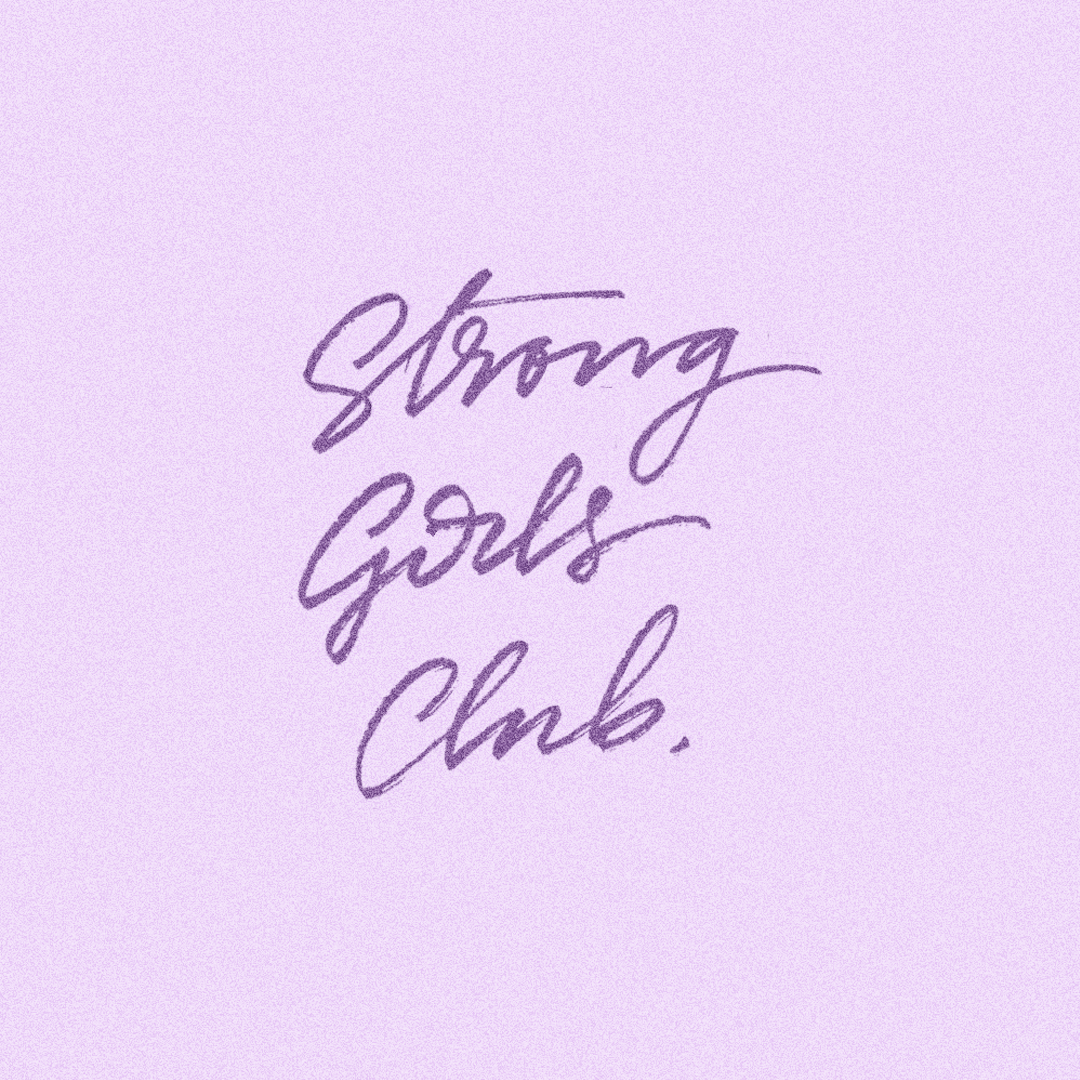 Strong
Girls
Club.